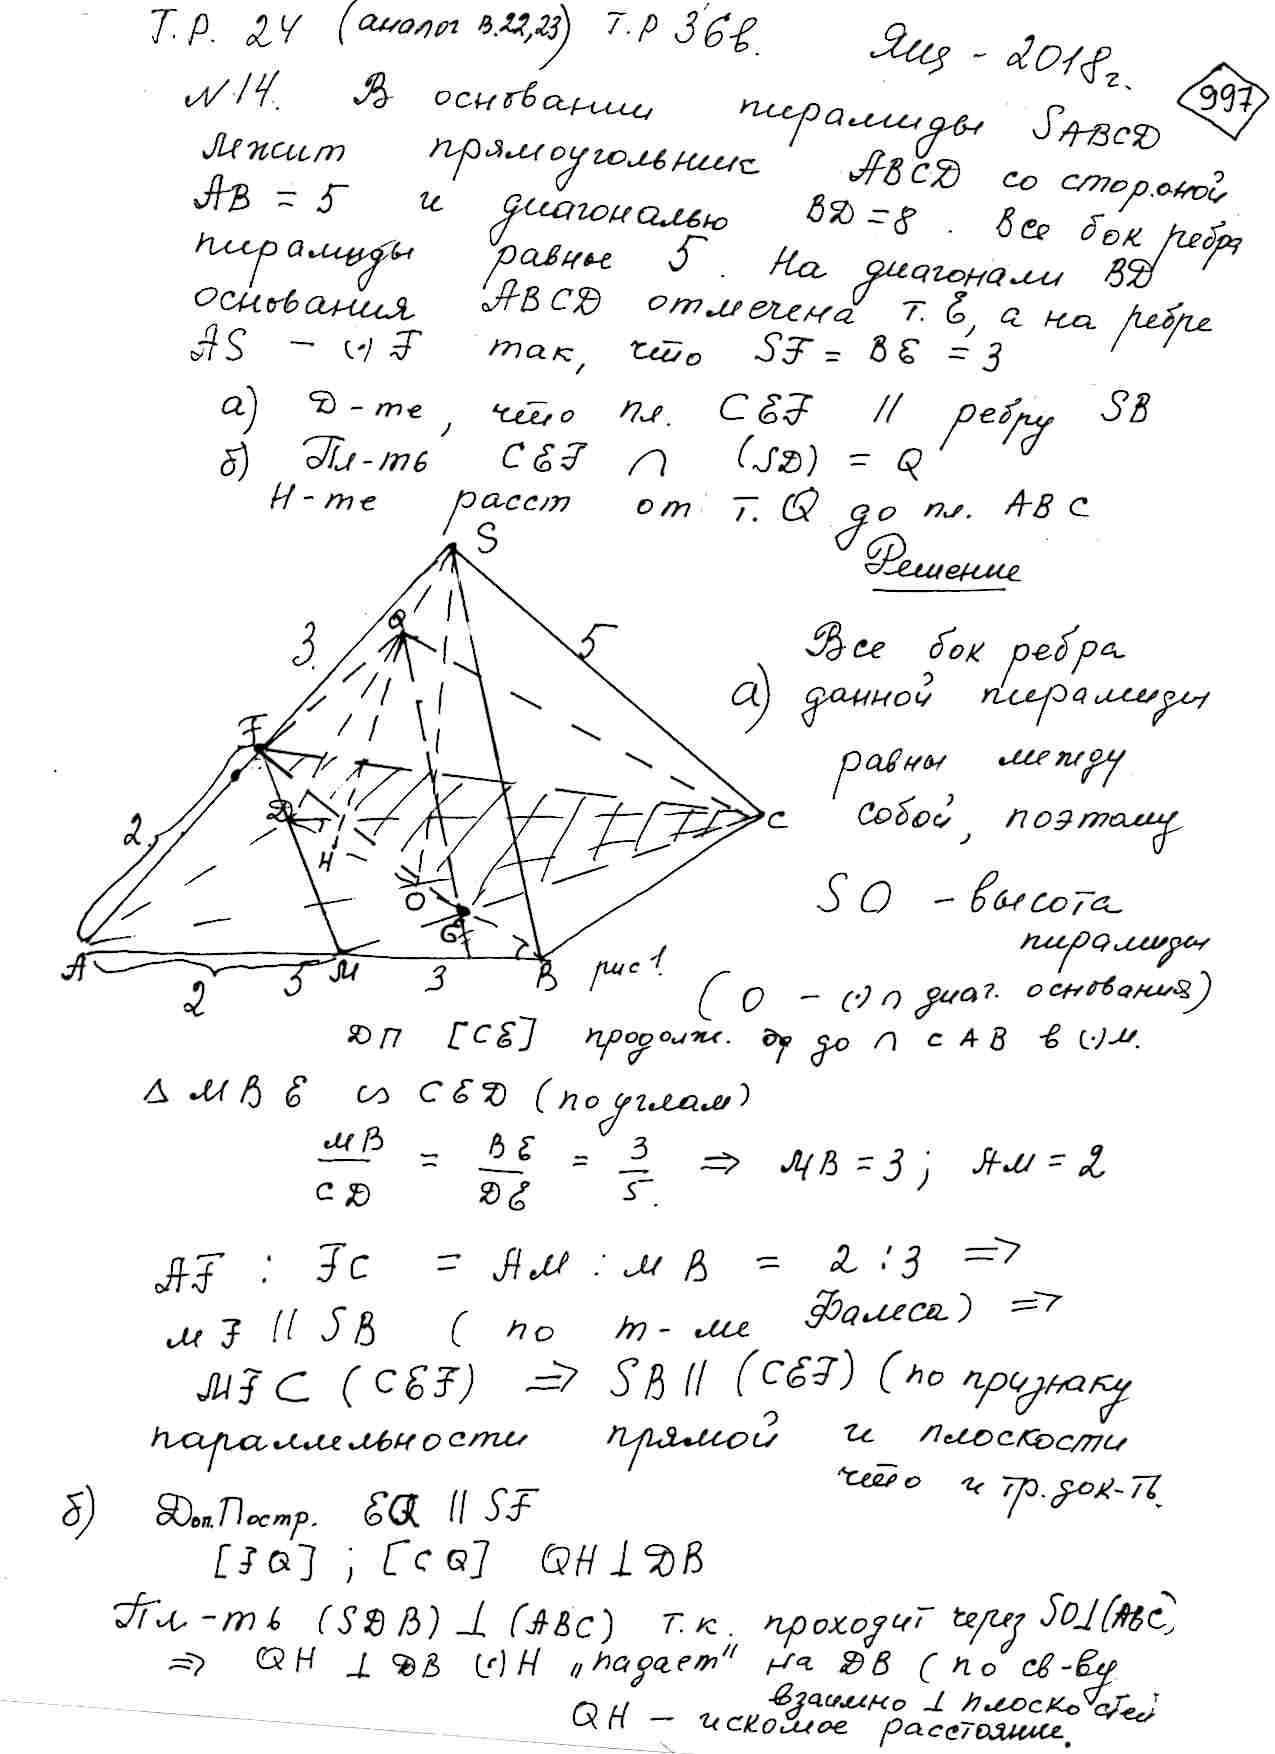 Т.Р. 24 (аналог в.22,23) Т.Р 36в. Ящ - 2018г.
997
N 14. В основании пирамиды SABCD
лежит прямоугольник ABCD со стороной
AB = 5 и диагональю BD = 8. Все бок ребра
пирамиды равные 5. На диагонали BD
основания ABCD отмечена т. E, а на ребре
AS - (·) F так, что SF = BE = 3
а) Д-те, что пл. CEF || ребру SB
б) Пл-ть CEF ∩ (SD) = Q
Н-те расст от т. Q до пл. ABC
Решение
S
Q
3.
5
F
D
C
2.
H
O
E
A
M
B
2
5
3
рис 1.
Все бок ребра
а) данной пирамиды
равны между
собой, поэтому
SO - высота
пирамиды
(O - (·) ∩ диаг. основания)
ДП [CE] продолж. до ∩ с AB в (·) M.
Δ MBE ∽ CED (по углам)
MB/CD = BE/DE = 3/5. ⇒ MB = 3; AM = 2
AF : FC = AM : MB = 2 : 3 ⇒
MF || SB (по т-ме Фалеса) ⇒
MF ⊂ (CEF) ⇒ SB || (CEF) (по признаку
параллельности прямой и плоскости
что и тр. док-ть.
б) Доп. Постр. EQ || SF
[FQ] ; [CQ] QH ⊥ DB
Пл-ть (SDB) ⊥ (ABC) т.к. проходит через SO ⊥ (ABC),
⇒ QH ⊥ DB (·) H „падает" на DB (по св-ву
взаимно ⊥ плоскостей
QH - искомое расстояние.